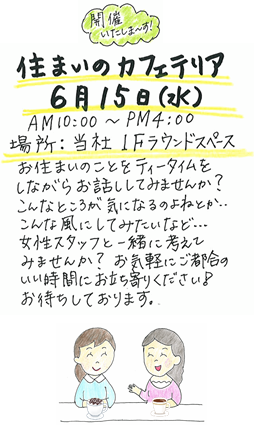 開催
いたしま〜す!
住まいのカフェテリア
6月15日(水)
AM10:00〜PM4:00
場所:当社1Fラウンドスペース
お住まいのことをティータイムを
しながらお話ししてみませんか?
こんなところが気になるのよねとか..
こんな風にしてみたいなど...
女性スタッフと一緒に考えて
みませんか? お気軽にご都合の
いい時間にお立ち寄りください!
お待ちしております。